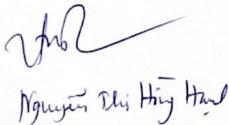 Nguyễn Thị Hồng Hạnh